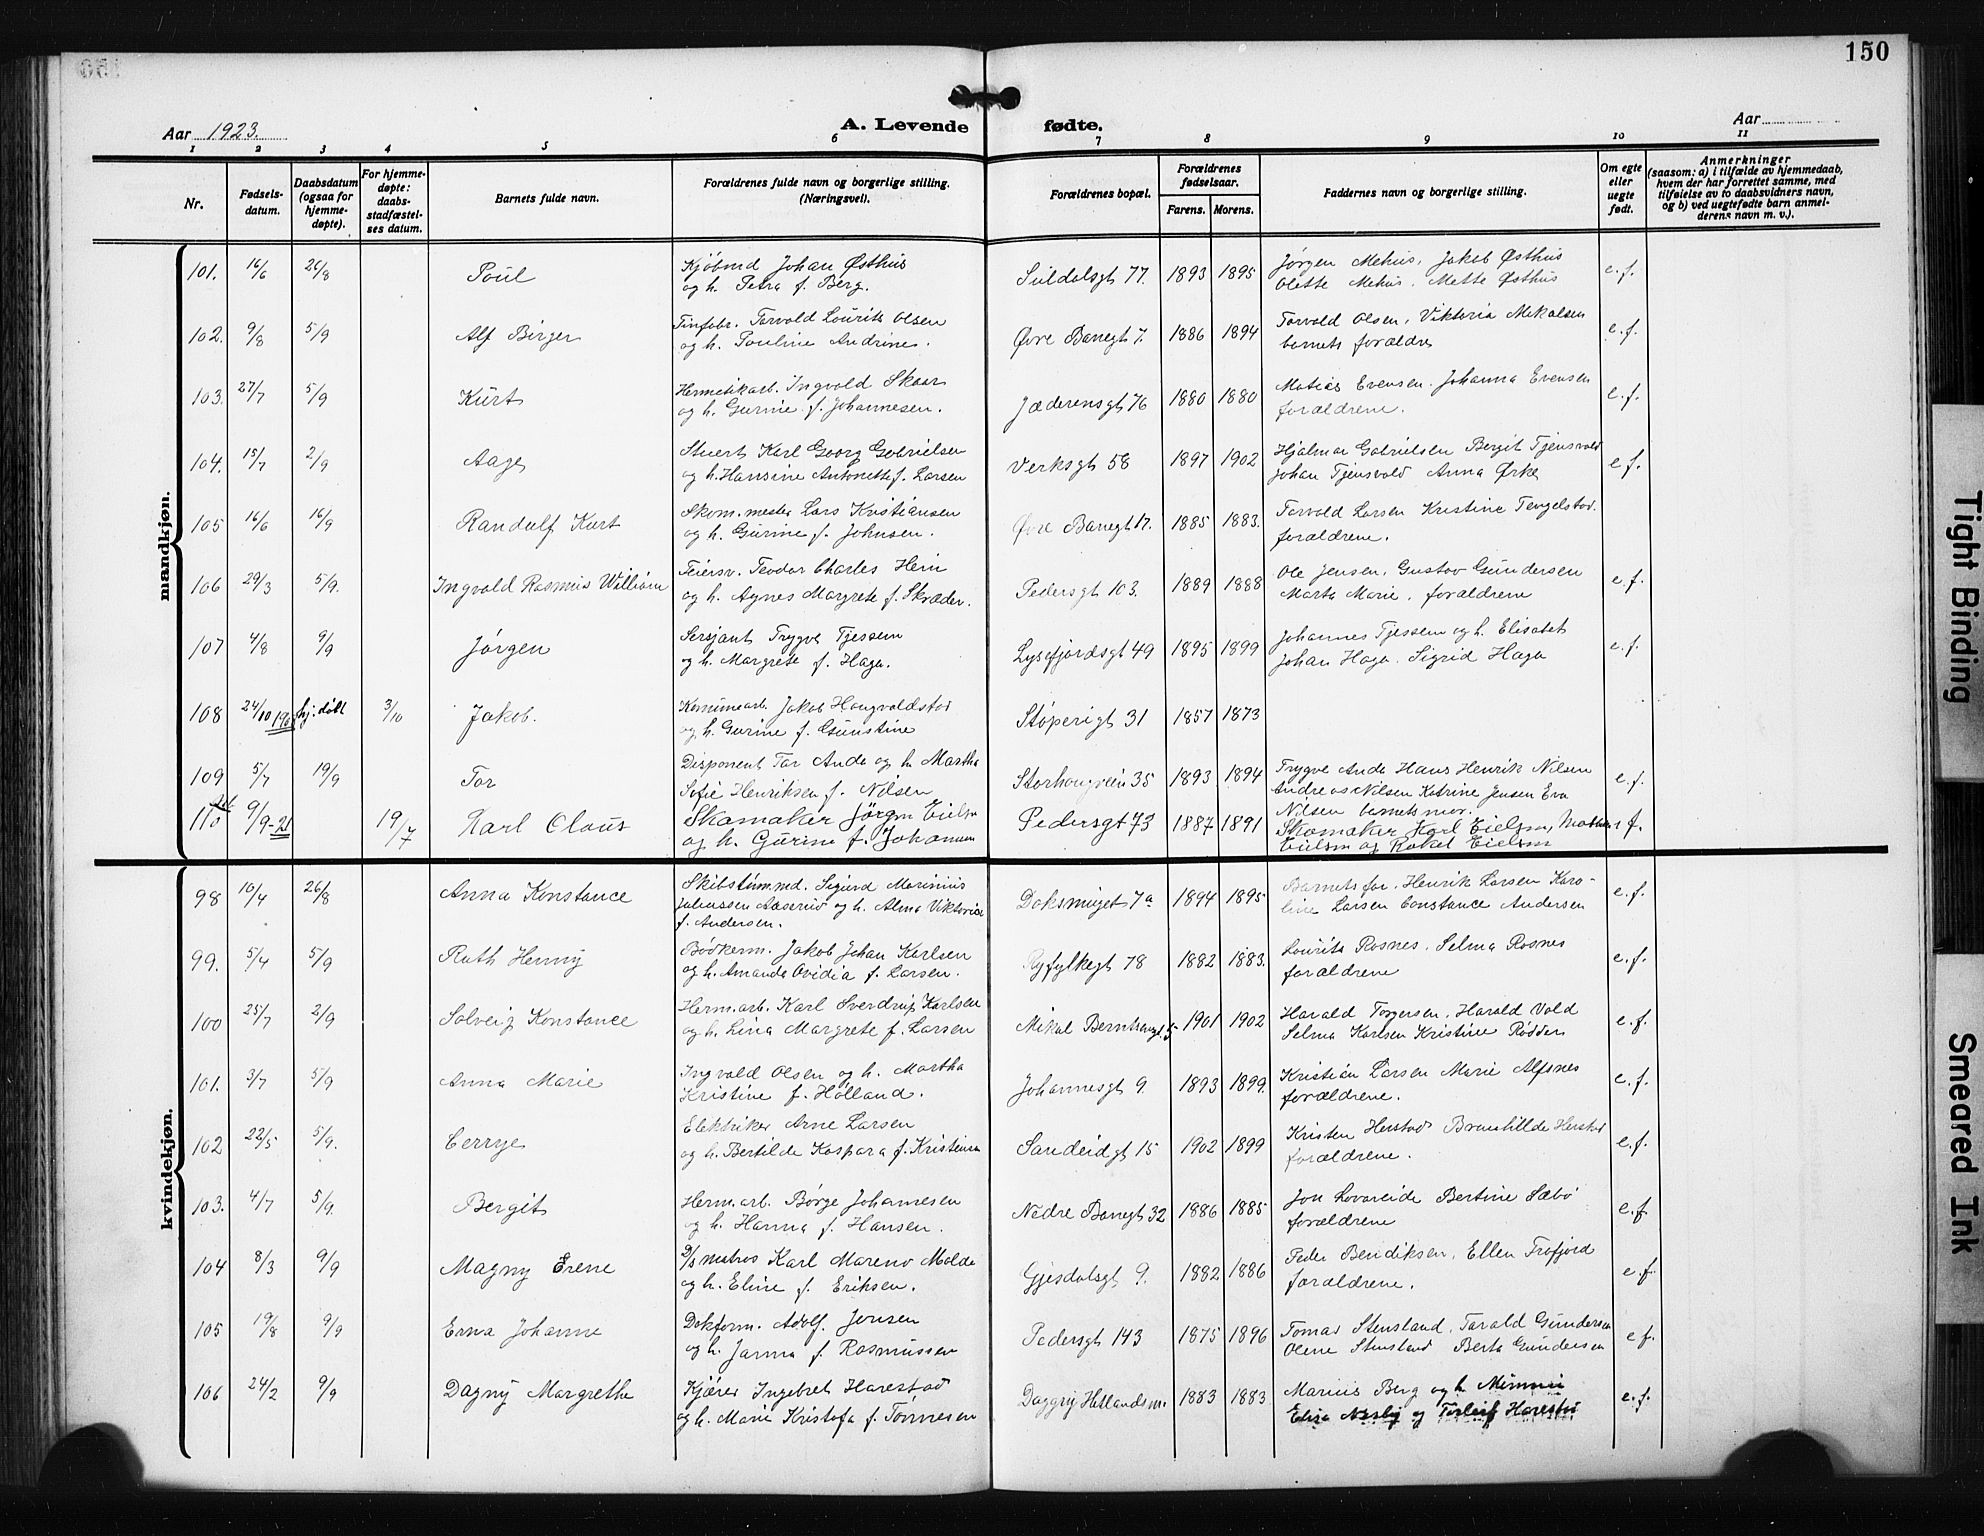 150
Aar 1923.
A. Levende fødte.
Aar
1 2 3 4 5 6 7 8 9 10 11
Nr.
Fødsels-
datum.
Daabsdatum
(ogsaa for
hjemme-
døpte).
For hjemme-
døpte:
daabs-
stadfæstel-
ses datum.
Barnets fulde navn.
Forældrenes fulde navn og borgerlige stilling.
(Næringsvei).
Forældrenes bopæl.
Forældrenes
fødselsaar.
Farens. Morens.
Faddernes navn og borgerlige stilling.
Om egte
eller
uegte
født.
Anmerkninger
(saasom: a) i tilfælde av hjemmedaab,
hvem der har forrettet samme, med
tilføielse av to daabsvidners navn,
og b) ved uegtefødte barn anmel-
derens navn m. v.).
mandkjøn.
101. 16/6 26/8 Poul
Kjøbmd Johan Østhus
og h. Petra f. Berg.
Suldalsgt 77. 1893 1895
Jørgen Mehus, Jakob Østhus
Olette Mehus. Mette Østhus
e.f.
102. 9/8 5/9 Alf Birger
Tinfabr. Torvald Lourits Olsen
og h. Pauline Andrine.
Øvre Banegt 7. 1886 1894
Torvald Olsen, Viktoria Mikalsen
barnets forældre
e.f.
103. 27/7 5/9 Kurt
Hermetikarb. Ingvold Skaar
og h. Gurine f. Johannesen.
Jæderensgt 76 1880 1880
Matias Evensen. Johanna Evensen
forældrene.
e.f.
104. 15/7 2/9 Aage
Stuert Karl Georg Gabrielsen
og h. Hansine Antonette f. Larsen
Verksgt 58 1897 1902
Hjalmar Gabrielsen Bergit Tjensvold
Johan Tjensvold Anna Ørke
e.f.
105 16/6 16/9 Randulf Kurt
Skom.mester Lars Kristiansen
og h. Gurine f. Johnsen.
Øvre Banegt 17. 1885 1883.
Torvald Larsen Kristine Tengelstad.
forældrene.
106 29/3 5/9. Ingvald Rasmus William
Feiersv. Teodor Charles Hein
og h. Agnes Margrete f. Skræder.
Pedersgt 103. 1889 1888
Ole Jensen, Gustav Gundersen
Marta Marie. forældrene
e.f.
107 4/8 9/9 Jørgen
Sersjant Trygve Tjessem
og h. Margrete f. Haga.
Lysefjordsgt 49 1895 1899
Johannes Tjessem og h. Elisabet
Johan Haga. Sigrid Haga
e.f.
108 24/10 hj. døbt 3/10 Jakob.
Jakob Haugvaldstad
og h. Gurine f.
Støperigt 31 1857 1873
109 5/7 19/9 Tor
Disponent Tor Anda og h Martha
Sofie Henriksen f. Nilsen
Storhaugveien 35 1893 1894
Trygve Anda Hans Henrik Nilsen
Andreas Nilsen Katrine Jensen Eva
Nilsen barnets mor.
e.f.
110 9/9-21 19/7 Karl Claus
Skomaker Jørgen Eielsen
og h. Gurine f. Johannesen
Pedersgt 73 1887 1891
Skomaker Karl Eielsen,
Eielsen og Rakel Eielsen
kvindekjøn.
98 10/4 26/8 Anna Konstance
Skibstømmd. Sigurd Marinius
Juliussen Aaserud og h. Alma Viktoria
f. Andersen.
Doksmuget 7a 1894 1895
Barnets far. Henrik Larsen Karo-
line Larsen Constance Andersen
e.f.
99. 5/4 5/9 Ruth Henny
Bødkerm. Jakob Johan Karlsen
og h. Amanda Ovidia f. Larsen.
Ryfylkegt 78 1882 1883.
Lourits Rosnes. Selma Rosnes
forældrene
e.f.
100 25/7 2/9 Solveig Konstance
Herm.arb. Karl Sverdrup Karlsen
og h. Lina Margrete f. Larsen
Mikal Berntsensgt. 5 1901 1902
Harald Torgersen. Harald Vold
Selma Karlsen Kristine Rødder
e.f.
101. 3/7 5/9 Anna Marie
Ingvald Olsen og h. Martha
Kristine f. Hølland.
Johannesgt 9. 1893 1899.
Kristian Larsen Marie Alfsnes
forældrene.
e.f.
102 22/5 5/9. Cerrye
Elektriker Arne Larsen
og h. Bertilde Kaspara f. Kristensen
Sandeidgt 15 1902 1899
Kristen Herstad Brunhilde Herstad
forældrene.
e.f.
103. 4/7 5/9. Bergit
Herm.arb. Børge Johannesen
og h. Hanna f. Hansen.
Nedre Banegt 32 1886 1885
Jon Lovareide Bertine Sæbø
forældrene
e.f.
104 8/3 9/9 Magny Erene
D/s matros Karl Mareno Molde
og h. Eline f. Eriksen.
Gjesdalsgt 9. 1882 1886
Peder Bendiksen, Ellen Trofjord
forældrene.
e.f.
105 19/8 9/9 Erna Johanne
Dokform. Adolf Jensen
og h. Janna f. Rasmussen
Pedersgt 143 1875 1896
Tomas Stensland, Tarald Gundersen
Olene Stensland Berta Gundersen
e.f.
106 24/2 9/9 Dagny Margrethe
Kjører Ingebret Harestad
og h. Marie Kristofa f. Tønnesen
1883 1883
Marius Berg og h. Mimmi
Elisa Næsby og Torleif Harestad
e.f.
Tight Binding
Smeared Ink